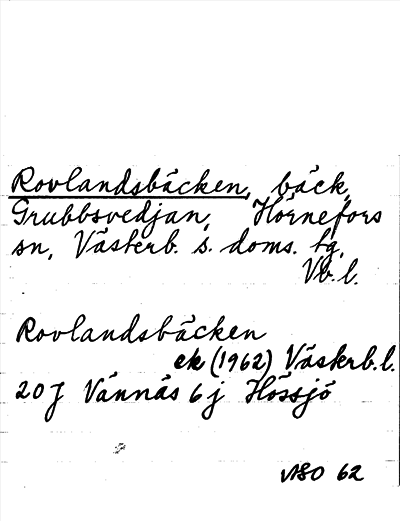 Rovlandsbäcken, bäck,
Grubbsvedjan, Hörnefors
sn, Västerb. s. doms. tg,
Vb. l.
Rovlandsbäcken
ek (1962) Västerb. l.
20J Vännäs 6j Hössjö
NSO 62